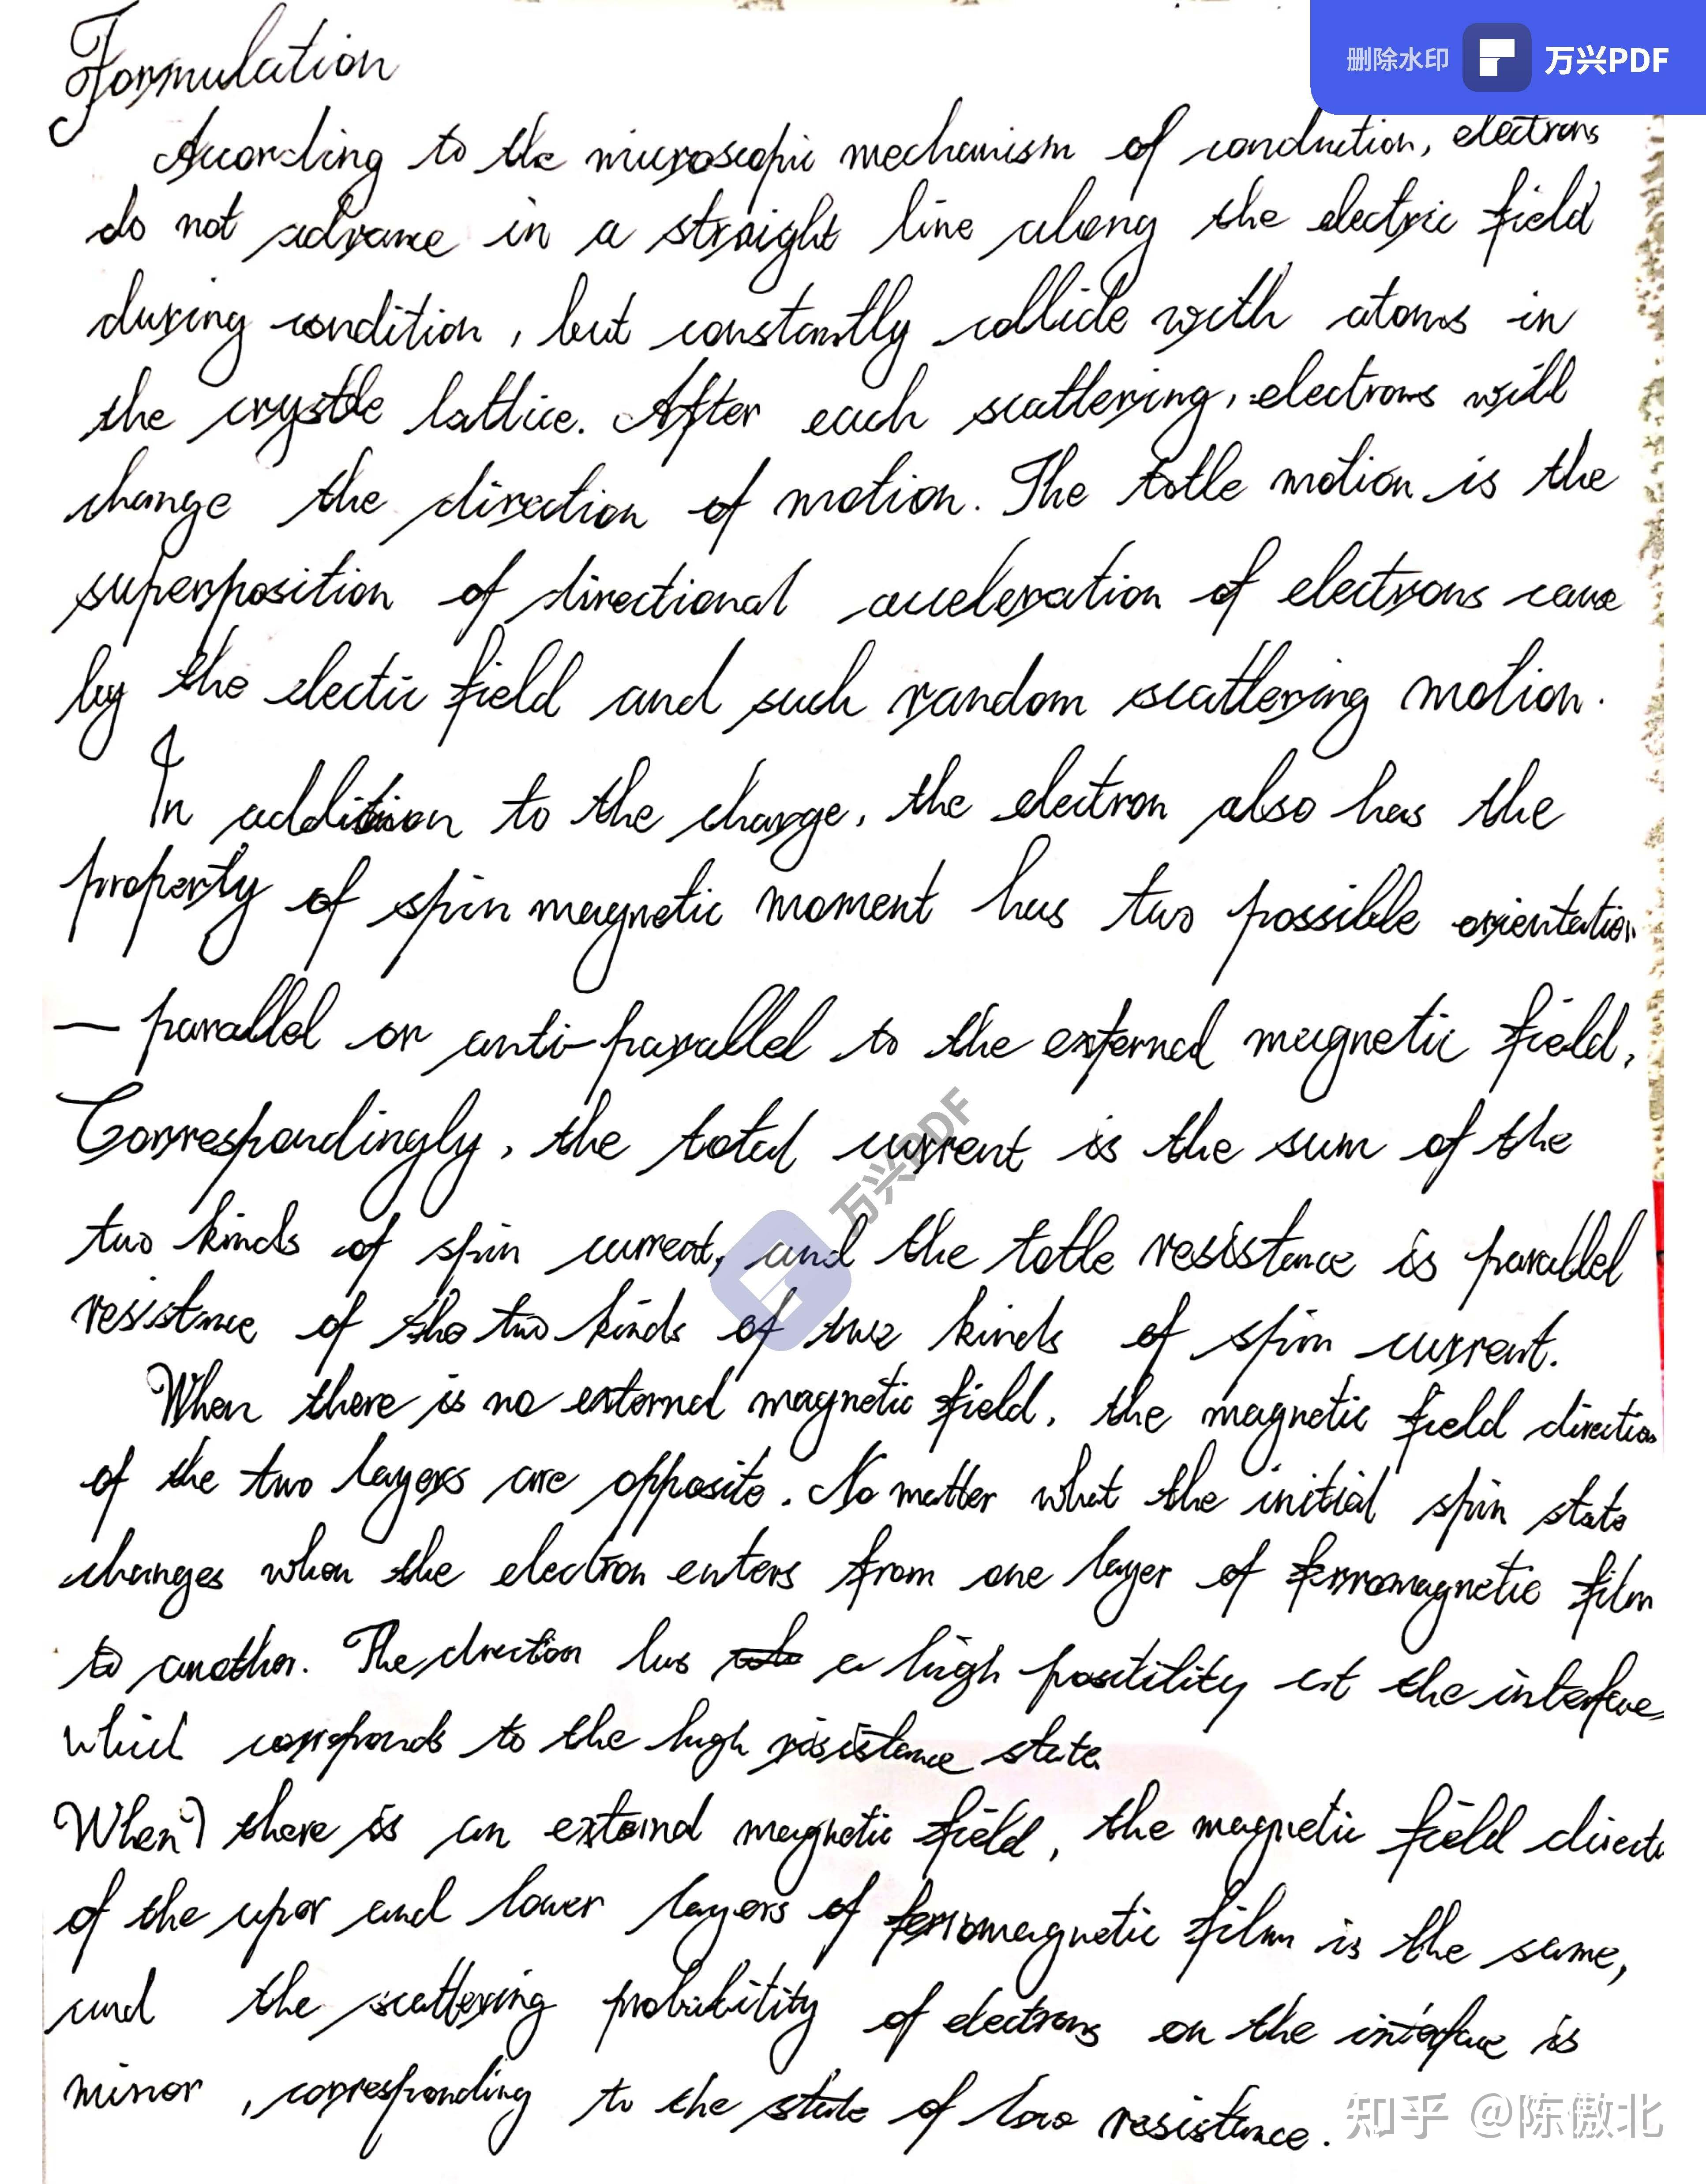 删除水印 万兴PDF
Formulation
According to the microscopic mechanism of conduction, electrons
do not advance in a straight line along the electric field
during condition, but constantly collide with atoms in
the crystle lattice. After each scattering, electrons will
change the direction of motion. The totle motion is the
superposition of directional acceleration of electrons
by the electic field and such random scattering motion.
In addition to the charge, the electron also has the
property of spin magnetic moment has two possible orientation
— parallel or anti-parallel to the external magnetic field,
Correspondingly, the total current is the sum of the
two kinds of spin current, and the totle resistance is parallel
resistance of the two kinds of kinds of spin current.
When there is no external magnetic field, the magnetic field direction
of the two layers are opposite. No matter what the initial spin state
changes when the electron enters from one layer of ferromagnetic film
to another. The has a high at the interface
which corresponds to the high resistance state
When there is an external magnetic field, the magnetic field directi
of the upper and lower layers of ferromagnetic film is the same,
and the scattering probability of electrons on the interface is
minor, corresponding to the state of low resistance.
万兴PDF
知乎 @陈傲北